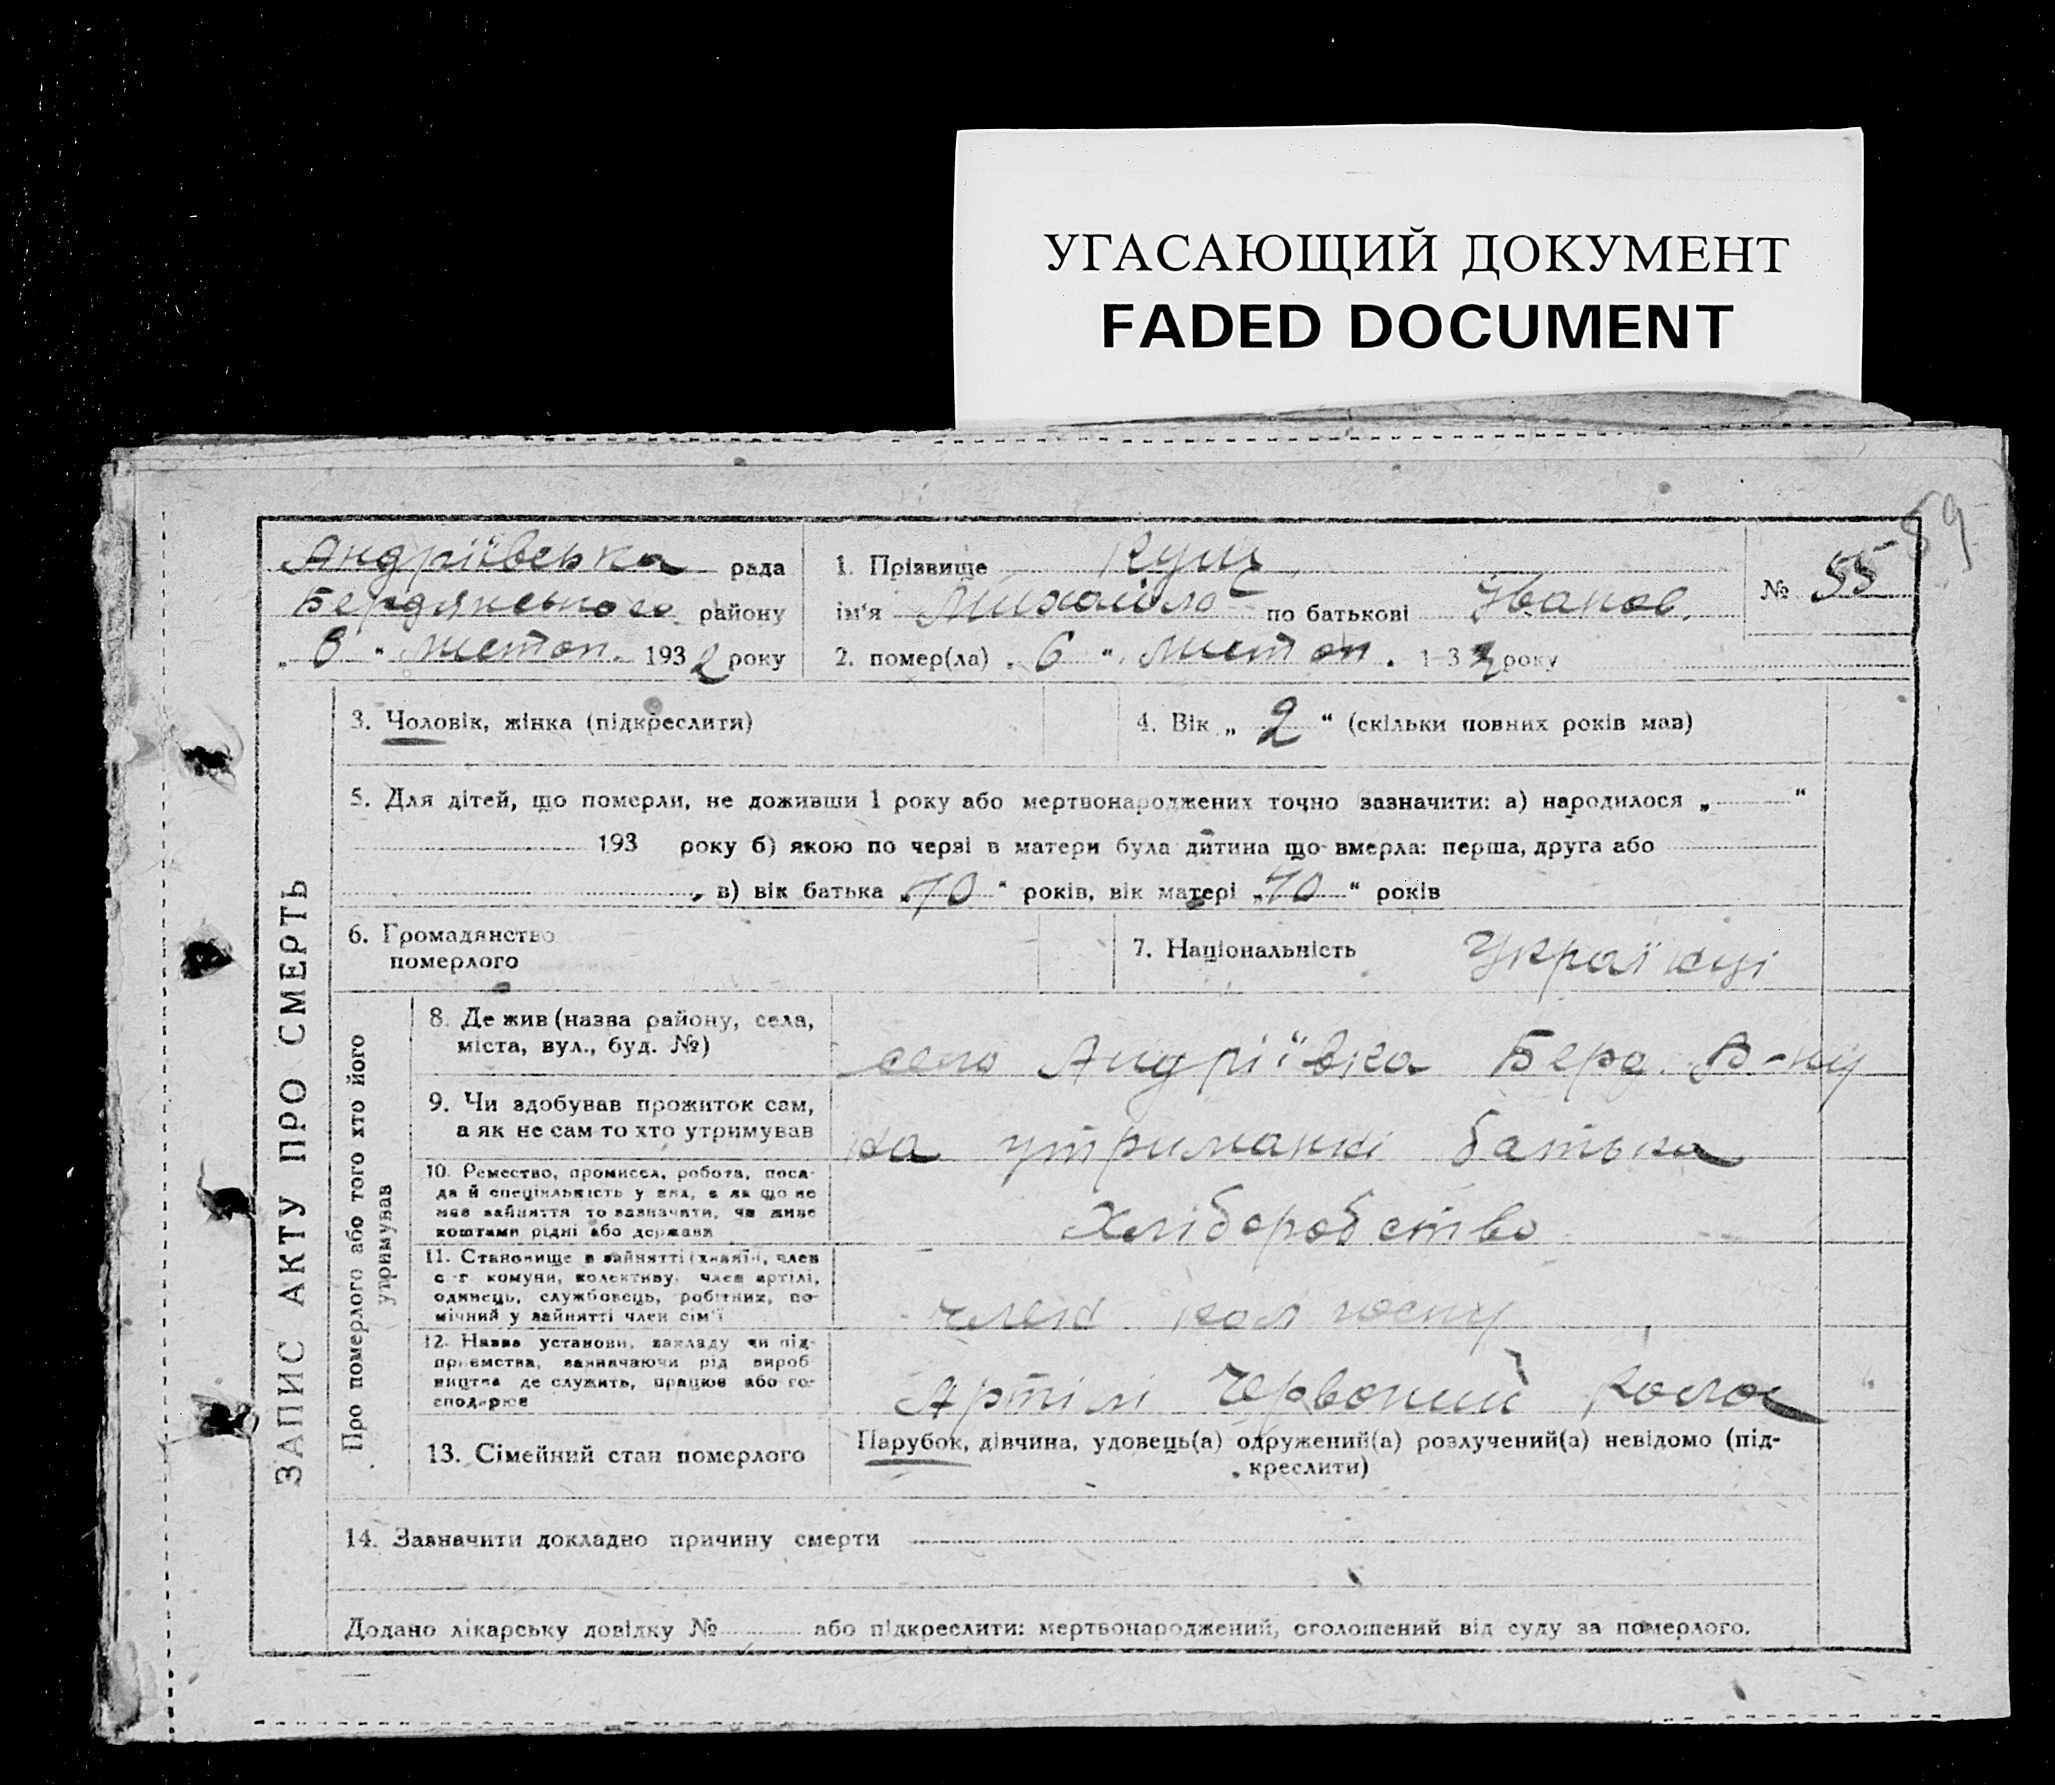 УГАСАЮЩИЙ ДОКУМЕНТ
FADED DOCUMENT
59
Андріївська рада
Бердянського району
„ 8 " листоп. 1932 року
1. Прізвище Кущ
ім'я Михайло по батькові Іванов.
2. помер(ла) „ 6 " листоп. 1 32 року
№ 55
3. Чоловік, жінка (підкреслити)
4. Вік „ 2 " (скільки повних років мав)
5. Для дітей, що померли, не доживши 1 року або мертвонароджених точно зазначити: а) народилося „ "
193 року б) якою по черзі в матери була дитина що вмерла: перша, друга або
, в) вік батька „ 40 " років, вік матері „ 40 " років
6. Громадянство
померлого
7. Національність Українці
ЗАПИС АКТУ ПРО СМЕРТЬ
Про померлого або того хто його
утримував
8. Де жив (назва району, села,
міста, вул., буд. №)
село Андріївка Берд. Р-ну
9. Чи здобував прожиток сам,
а як не сам то хто утримував
на утриманні батька
10. Ремество, промисел, робота, поса-
да й спеціяльність у них, а як що не
мав зайняття то зазначити, чи живе
коштами рідні або держави
Хліборобство
11. Становище в зайнятті (хазяїн, член
с-г комуни, колективу, член артілі,
одинець, службовець, робітник, по-
мічний у зайнятті член сім'ї
член колгоспу
12. Назва установи, закладу чи під-
приємства, зазначаючи рід вироб
ництва де служить, працює або го-
сподарює
Артілі Червоний колос
13. Сімейний стан померлого
Парубок, дівчина, удовець(а) одружений(а) розлучений(а) невідомо (під-
креслити)
14. Зазначити докладно причину смерти
Додано лікарську довідку № або підкреслити: мертвонароджений, оголошений від суду за померлого.